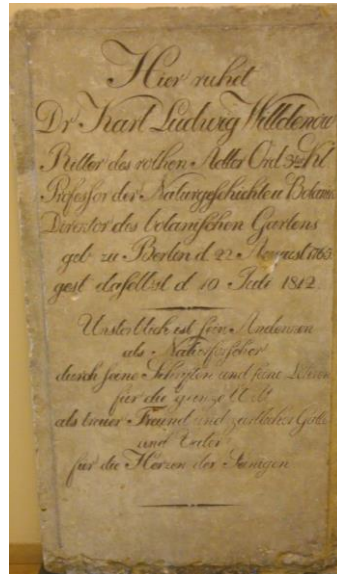 Hier ruhet
Dr Karl Ludwig Willdenow
Ritter des rothen Adler Ord 3ter Kl
Professor der Naturgeschichte u Botanik
Director des botanischen Gartens
geb zu Berlin d 22 August 1765
gest daselbst d 10 Juli 1812
Unsterblich ist sein Andenken
als Naturforscher
durch seine Schriften und seine Lehren
für die ganze Welt
als treuer Freund und zärtlicher Gatte
und Vater
für die Herzen der Seinigen